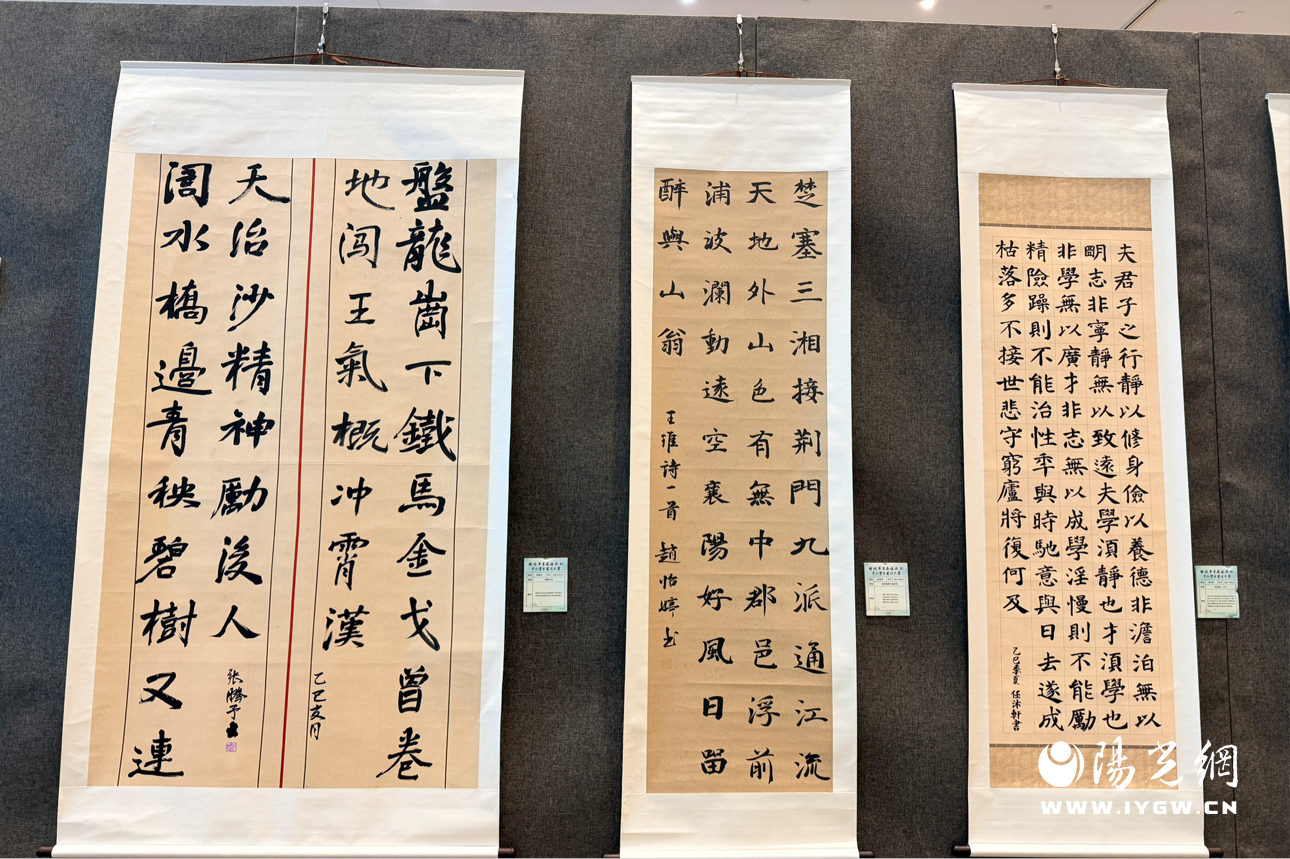 盤龍崗下鐵馬金戈曾卷
地闯王氣概冲霄漢
乙巳亥月
訚水橋邊青秧碧樹又連
天治沙精神勵後人
张勝予書
楚塞三湘接荆門九派通江流
天地外山色有無中郡邑浮前
浦波瀾動遠空襄陽好風日留
醉與山翁
王維诗一首 趙怡婷书
夫君子之行靜以修身儉以養德非澹泊無以
眀志非寧靜無以致遠夫學湏靜也才湏學也
非學無以廣才非志無以成學淫慢則不能勵
精險躁則不能治性秊與時馳意與日去遂成
枯落多不接世悲守窮廬將復何及
乙巳季夏 任沐軒書
陽光網
WWW.IYGW.CN